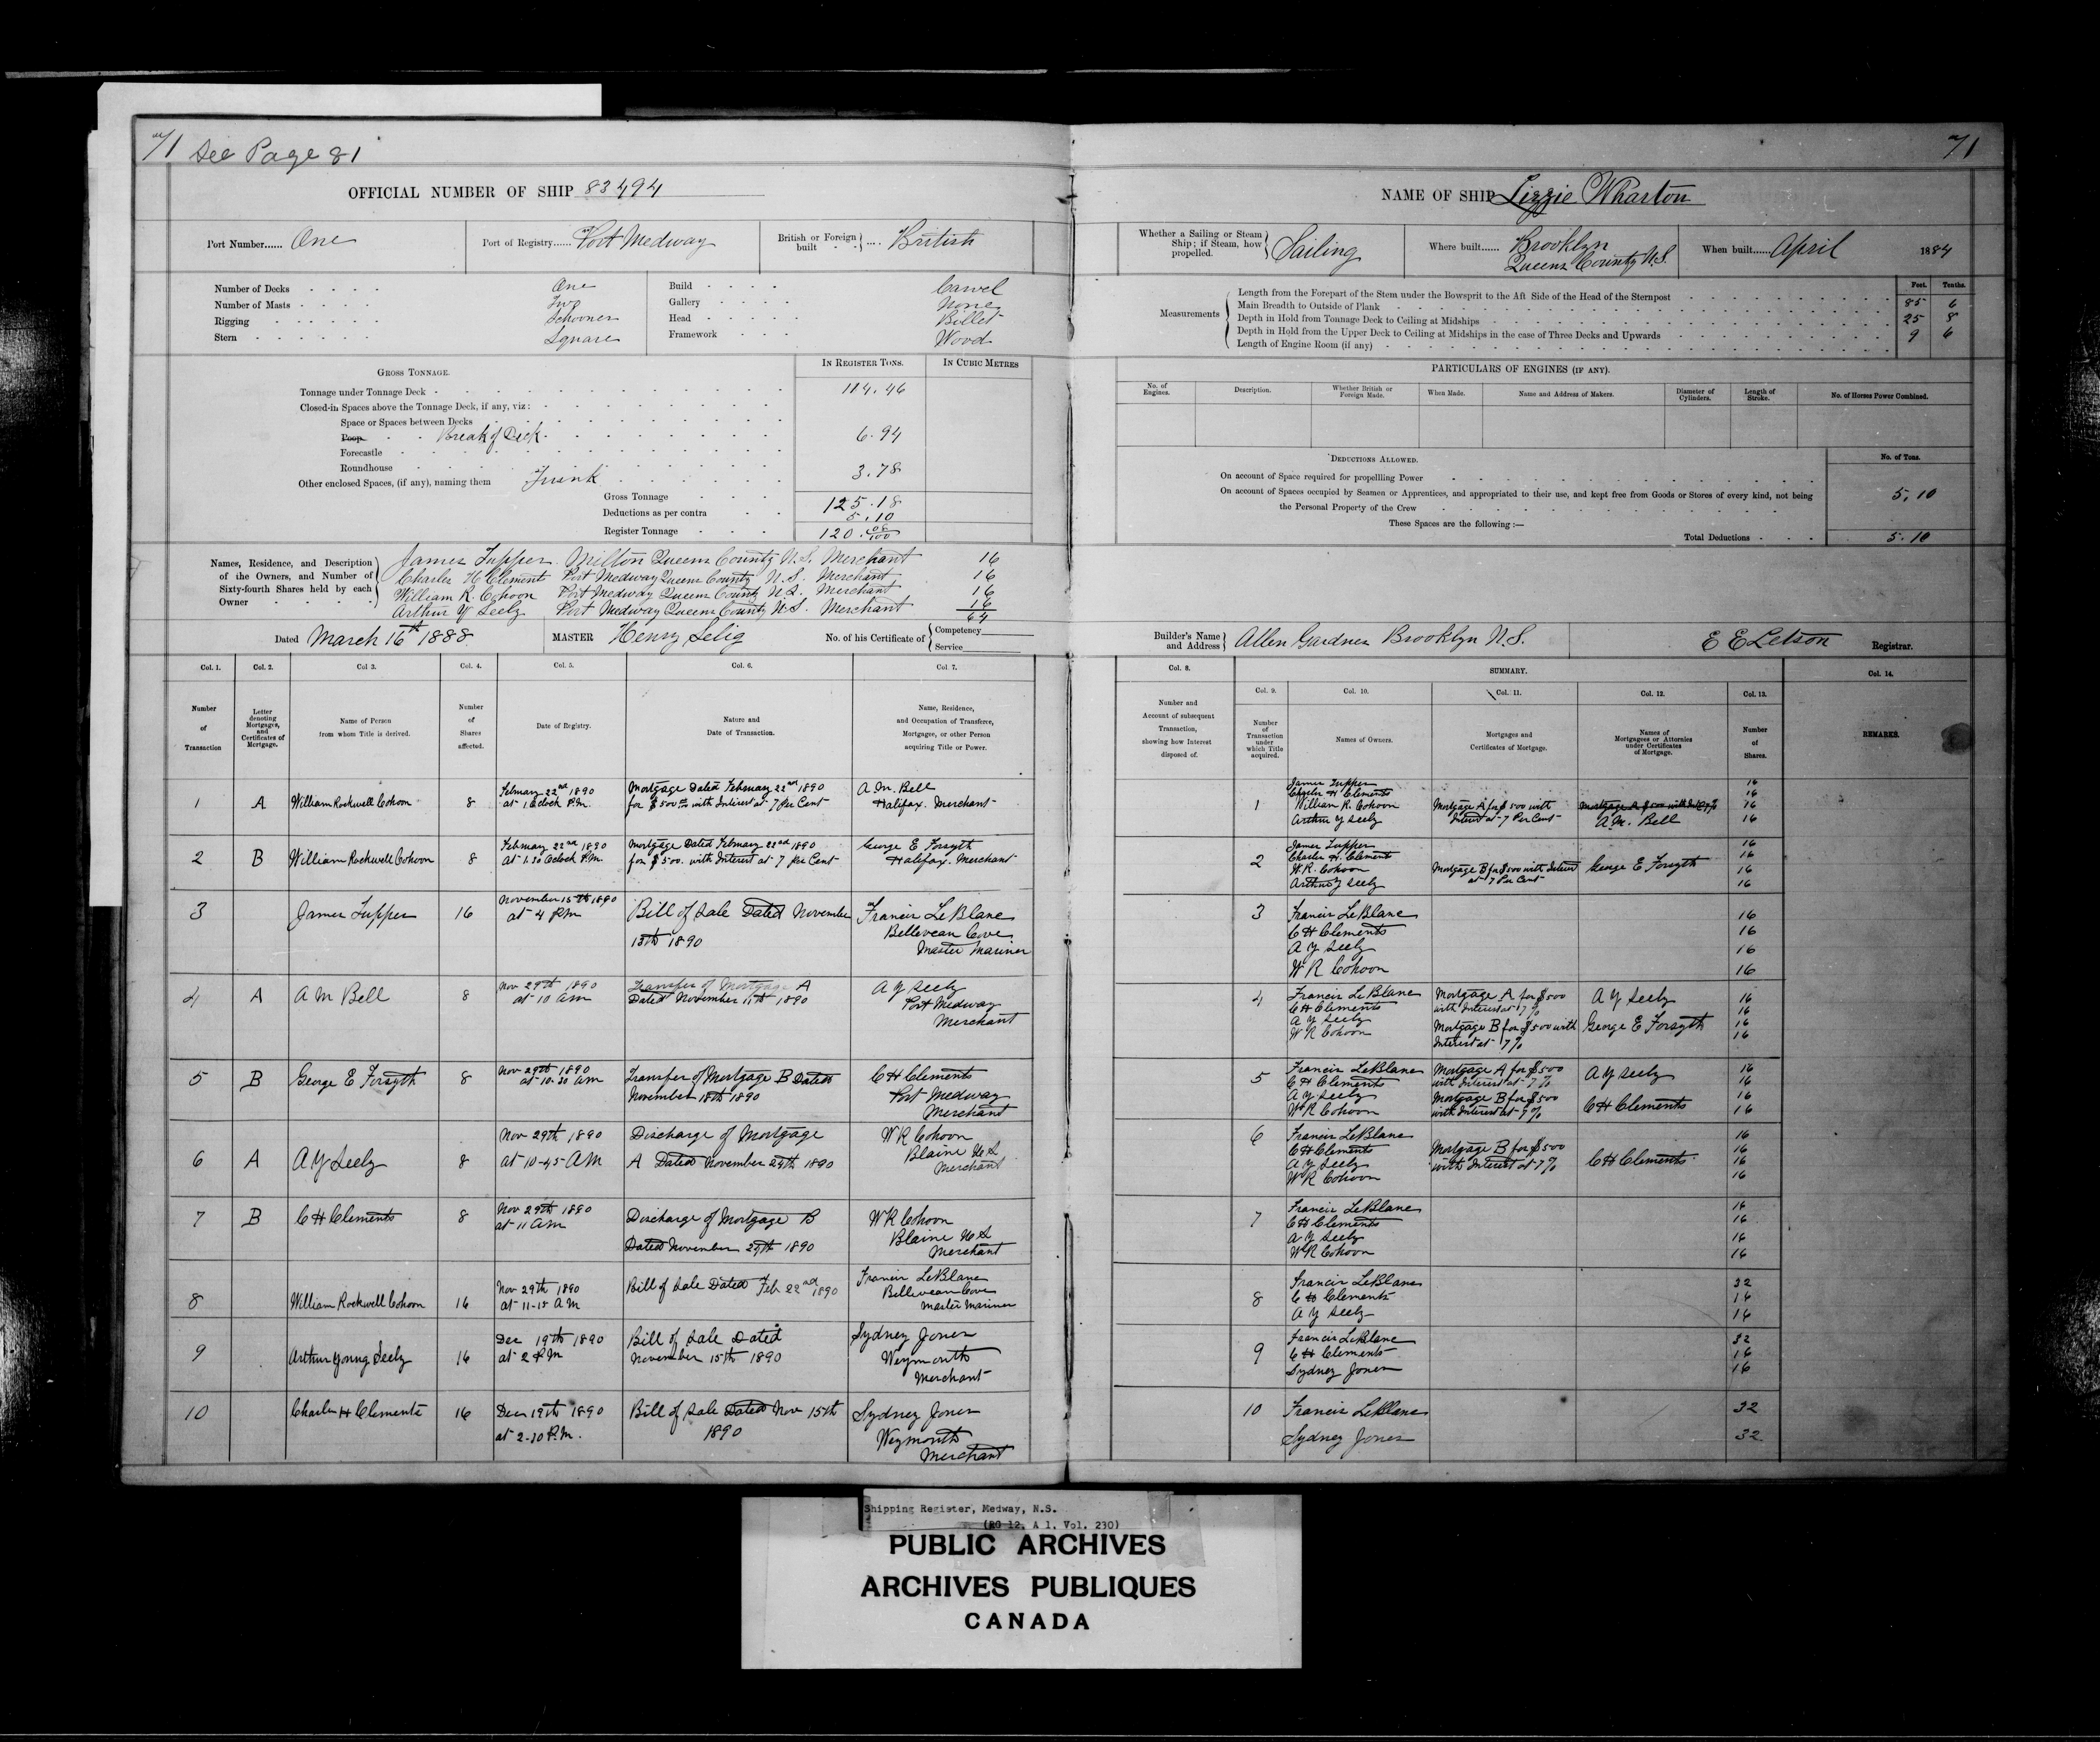 71 See Page 81
OFFICIAL NUMBER OF SHIP 83494
Port Number...... One
Port of Registry...... Port Medway
British or Foreign built .... British
Number of Decks One
Number of Masts Two
Rigging Schooner
Stern Square
Build Carvel
Gallery None
Head Billet
Framework Wood
GROSS TONNAGE. IN REGISTER TONS. IN CUBIC METRES
Tonnage under Tonnage Deck 114.46
Closed-in Spaces above the Tonnage Deck, if any, viz:
Space or Spaces between Decks
Poop Break of Deck 6.94
Forecastle
Roundhouse 3.78
Other enclosed Spaces, (if any), naming them Trunk
Gross Tonnage 125.18
Deductions as per contra 5.10
Register Tonnage 120.08/100
Names, Residence, and Description of the Owners, and Number of Sixty-fourth Shares held by each Owner
James Tupper Milton Queens County N.S. Merchant 16
Charles H Clements Port Medway Queens County N.S. Merchant 16
William R. Cohoon Port Medway Queens County N.S. Merchant 16
Arthur Y Seely Port Medway Queens County N.S. Merchant 16
64
Dated March 16th 1888
MASTER Henry Selig
No. of his Certificate of Competency Service
Col. 1. Col. 2. Col 3. Col. 4. Col. 5. Col. 6. Col 7.
Number of Transaction
Letter denoting Mortgages, and Certificates of Mortgage.
Name of Person from whom Title is derived.
Number of Shares affected.
Date of Registry.
Nature and Date of Transaction.
Name, Residence, and Occupation of Transferee, Mortgagee, or other Person acquiring Title or Power.
1 A William Rockwell Cohoon 8
February 22nd 1890
at 1 Oclock P.M.
Mortgage Dated February 22nd 1890
for $500 with Interest at 7 Per Cent
A. M. Bell
Halifax. Merchant
2 B William Rockwell Cohoon 8
February 22nd 1890
at 1.30 Oclock P.M.
Mortgage Dated February 22nd 1890
for $500. with Interest at 7 per Cent
George E Forsyth
Halifax. Merchant
3 James Tupper 16
November 15th 1890
at 4 P.M
Bill of Sale Dated November
15th 1890
Francis LeBlanc
Belliveau Cove
Master Mariner
4 A A M Bell 8
Nov 29th 1890
at 10 am
Transfer of Mortgage A
Dated November 11th 1890
A Y Seely
Port Medway
Merchant
5 B George E Forsyth 8
Nov 29th 1890
at 10.30 am
Transfer of Mortgage B Dated
November 18th 1890
C H Clements
Port Medway
Merchant
6 A A Y Seely 8
Nov 29th 1890
at 10-45 AM
Discharge of Mortgage
A Dated November 29th 1890
W R Cohoon
Blaine U S
Merchant
7 B C H Clements 8
Nov 29th 1890
at 11 am
Discharge of Mortgage B
Dated November 29th 1890
W R Cohoon
Blaine U S
Merchant
8 William Rockwell Cohoon 16
Nov 29th 1890
at 11-15 A M
Bill of Sale Dated Feb 22nd 1890
Francis LeBlanc
Belliveau Cove
Master Mariner
9 Arthur Young Seely 16
Dec 19th 1890
at 2 P.M
Bill of Sale Dated
November 15th 1890
Sydney Jones
Weymouth
Merchant
10 Charles H Clements 16
Dec 19th 1890
at 2-30 P.M.
Bill of Sale Dated Nov 15th
1890
Sydney Jones
Weymouth
Merchant
71
NAME OF SHIP Lizzie Wharton
Whether a Sailing or Steam Ship; if Steam, how propelled. Sailing
Where built...... Brooklyn
Queens County N.S.
When built...... April 1884
Feet. Tenths.
Measurements
Length from the Forepart of the Stem under the Bowsprit to the Aft Side of the Head of the Sternpost 85 6
Main Breadth to Outside of Plank 25 8
Depth in Hold from Tonnage Deck to Ceiling at Midships 9 6
Depth in Hold from the Upper Deck to Ceiling at Midships in the case of Three Decks and Upwards
Length of Engine Room (if any)
PARTICULARS OF ENGINES (IF ANY).
No. of Engines. Description. Whether British or Foreign Made. When Made. Name and Address of Makers. Diameter of Cylinders. Length of Stroke. No. of Horses Power Combined.
DEDUCTIONS ALLOWED. No. of Tons.
On account of Space required for propellling Power
On account of Spaces occupied by Seamen or Apprentices, and appropriated to their use, and kept free from Goods or Stores of every kind, not being
the Personal Property of the Crew 5.10
These Spaces are the following :—
Total Deductions 5.10
Builder's Name and Address Allen Gardner Brooklyn N.S.
E E Letson Registrar.
Col. 8. SUMMARY. Col. 14.
Col. 9. Col. 10. Col. 11. Col. 12. Col. 13.
Number and Account of subsequent Transaction, showing how Interest disposed of.
Number of Transaction under which Title acquired.
Names of Owners.
Mortgages and Certificates of Mortgage.
Names of Mortgagees or Attornies under Certificates of Mortgage.
Number of Shares.
REMARKS.
1
James Tupper 16
Charles H Clements 16
William R. Cohoon 16
Arthur Y Seely 16
Mortgage A for $500 with
Interest at 7 Per Cent
A. M. Bell
2
James Tupper 16
Charles H. Clements 16
W. R. Cohoon 16
Arthur Y Seely 16
Mortgage B for $500 with Interest
at 7 Per Cent
George E Forsyth
3
Francis LeBlanc 16
C H Clements 16
A Y Seely 16
W R Cohoon 16
4
Francis LeBlanc 16
C H Clements 16
A Y Seely 16
W R Cohoon 16
Mortgage A for $500
with Interest at 7%
Mortgage B for $500 with
Interest at 7%
A Y Seely
George E Forsyth
5
Francis LeBlanc 16
C H Clements 16
A Y Seely 16
W R Cohoon 16
Mortgage A for $500
with Interest at 7%
Mortgage B for $500
with Interest at 7%
A Y Seely
C H Clements
6
Francis LeBlanc 16
C H Clements 16
A Y Seely 16
W R Cohoon 16
Mortgage B for $500
with Interest at 7%
C H Clements
7
Francis LeBlanc 16
C H Clements 16
A Y Seely 16
W R Cohoon 16
8
Francis LeBlanc 32
C H Clements 16
A Y Seely 16
9
Francis LeBlanc 32
C H Clements 16
Sydney Jones 16
10
Francis LeBlanc 32
Sydney Jones 32
Shipping Register, Medway, N.S.
(RG 12, A 1, Vol. 230)
PUBLIC ARCHIVES
ARCHIVES PUBLIQUES
CANADA